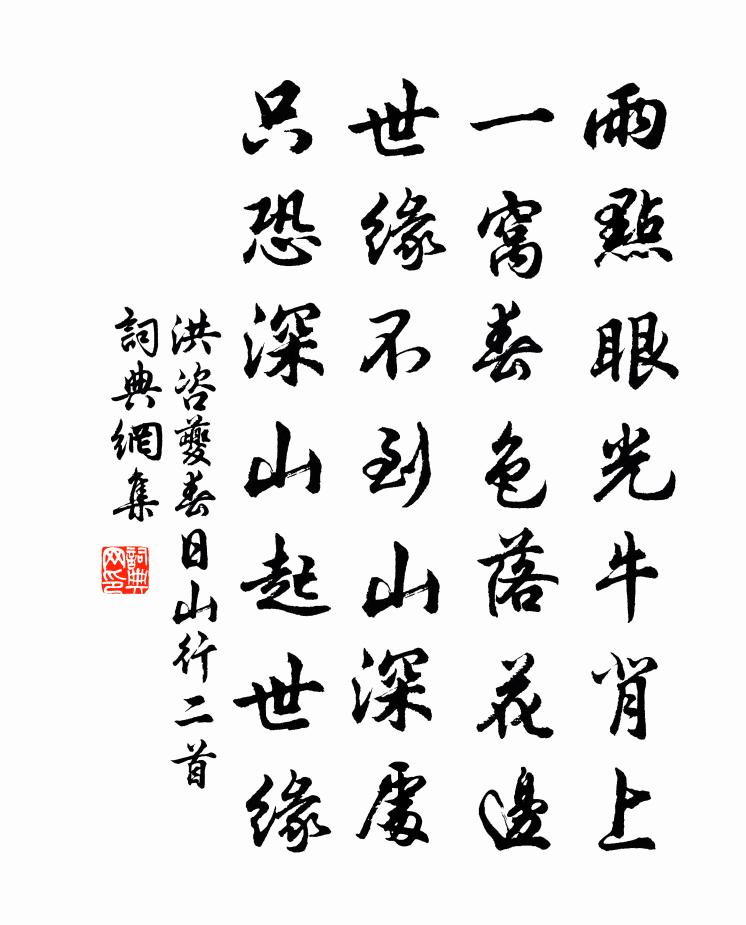 兩點眼光牛背上
一窩春色落花邊
世緣不到山深處
只恐深山起世緣
洪咨夔春日山行二首
詞典網集
詞典
网印